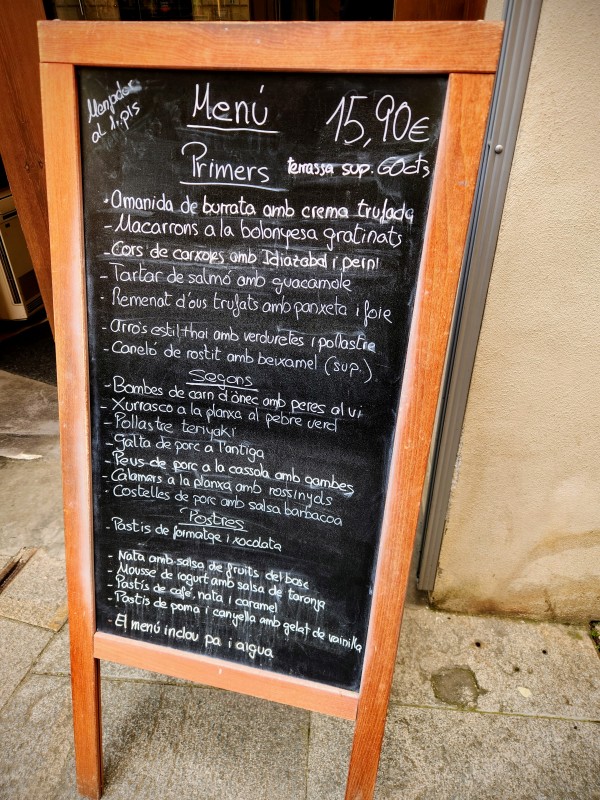 Menjador
al 1. pis
Menú
15,90€
Primers
terrassa sup. 60cts
-Amanida de burrata amb crema trufada
-Macarrons a la bolonyesa gratinats
-Cors de carxofes amb Idiazabal i pernil
-Tartar de salmó amb guacamole
-Remenat d'ous trufats amb panxeta i foie
-Arròs estil thai amb verduretes i pollastre
-Caneló de rostit amb beixamel (sup.)
Segons
-Bombes de carn d'ànec amb peres al vi
-Xurrasco a la planxa al pebre verd
-Pollastre teriyaki
-Galta de porc a l'antiga
-Peus de porc a la cassola amb gambes
-Calamars a la planxa amb rossinyols
-Costelles de porc amb salsa barbacoa
Postres
-Pastís de formatge i xocolata
-Nata amb salsa de fruits del bosc
-Mousse de iogurt amb salsa de taronja
-Pastís de café, nata i caramel
-Pastís de poma i canyella amb gelat de vainilla
-El menú inclou pa i aigua